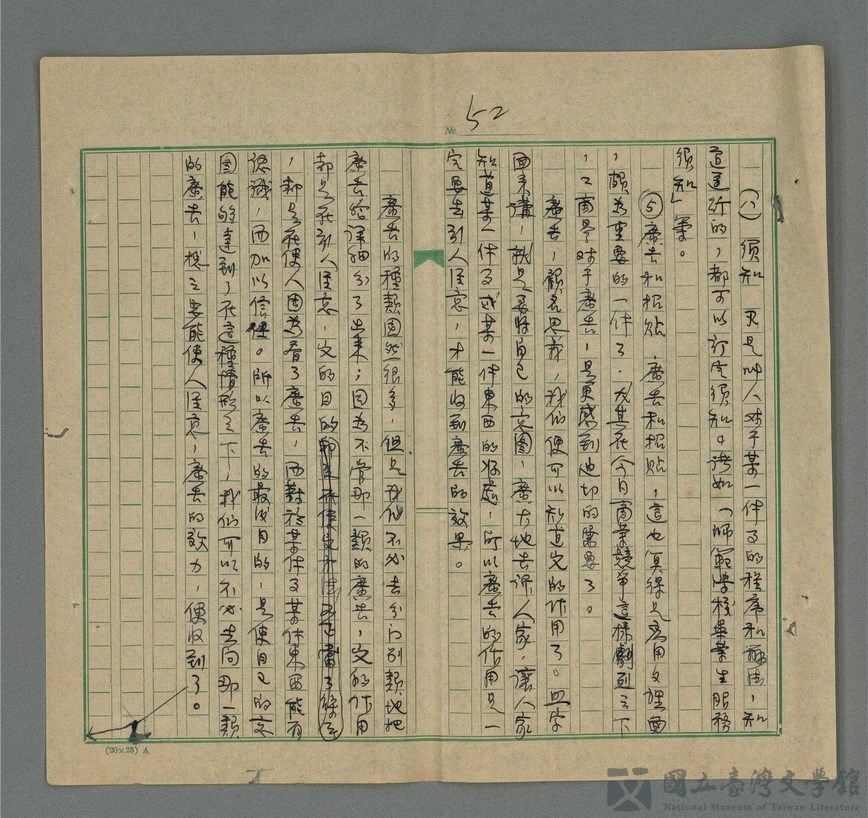 No. 52
(八) 須知 只是叫人对于某一件事的程序和辦法，知
道進行的，都可以訂定須知。諸如「師範學校畢業生服務
須知」等。
⑤廣告和招貼 廣告和招貼，這也算得是應用文裡面
，頗為重要的一件了。尤其在今日商業競爭這樣劇烈之下
，工商界对于廣告，是更感到迫切的需要了。
廣告，顧名思義，我们便可以知道它的作用了。照字
面來講，就是要將自己的意圖，廣大地告訴人家，讓人家
知道某一件事或某一件東西的好處，所以廣告的作用是一
定要去引人注意，才能收到廣告的效果。
廣告的種類固然很多，但是我们不必去分门別類地把
廣告給詳細分了出來；因為不管那一類的廣告，它的作用
都是在引人注意，它的目的
，都是在使人因為看了廣告，而對於某件事某件東西能有
認識，而加以信任。所以廣告的最後目的，是使自己的意
圖能夠達到，在這種情形之下，我们可以不必去问那一類
的廣告，總之要能使人注意，廣告的效力，便收到了。
(20×25) A
國立臺灣文學館
National Museum of Taiwan Literature